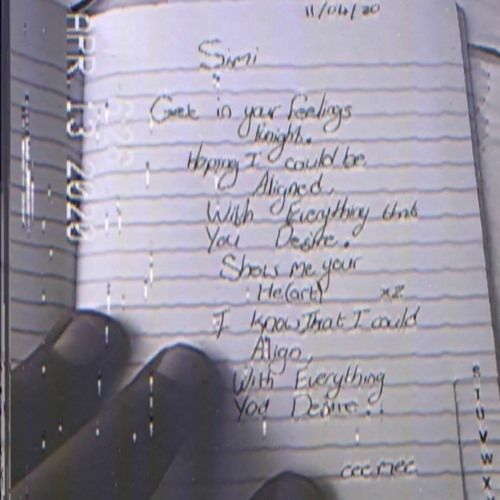 11/04/20
Simi
Get in your feelings
tonight.
Hoping I could be
Aligned,
With Everything that
You Desire.
Show me your
He(art) x2
I know That I could
Align,
With Everything
You Desire..
APR 13 2020
S
T
U
V
W
X